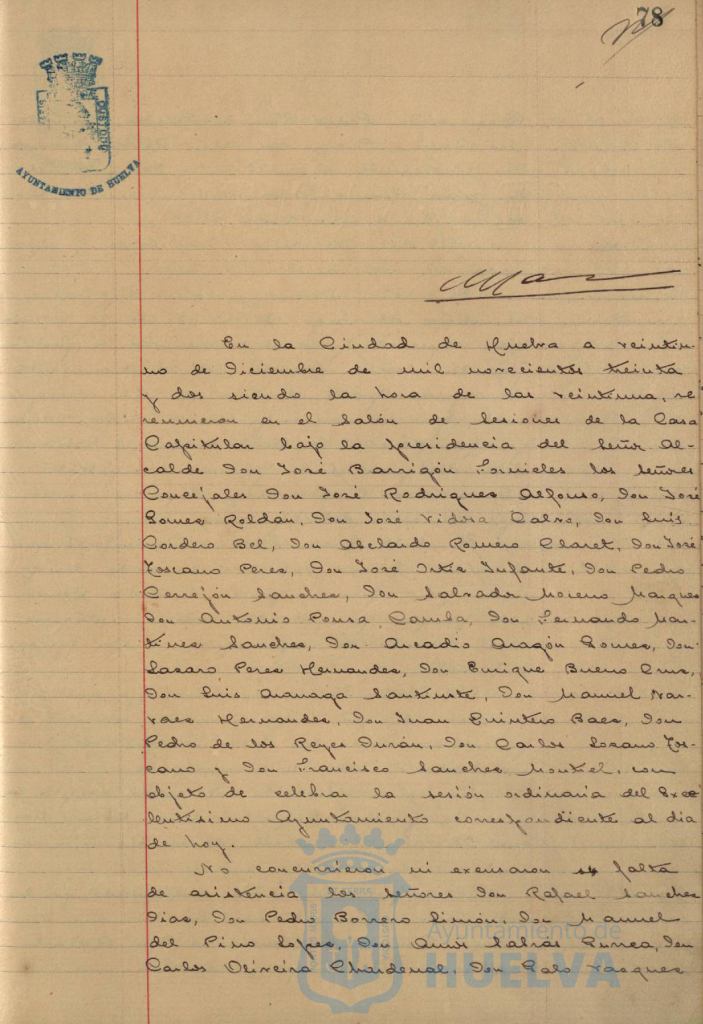 78
AYUNTAMIENTO DE HUELVA
En la Ciudad de Huelva a veintiu-
no de Diciembre de mil novecientos treinta
y dos siendo la hora de las veintiuna, se
reunieron en el Salón de Sesiones de la Casa
Capitular bajo la presidencia del Señor Al-
calde Don José Barrigón Fornieles los Señores
Concejales Don José Rodriguez Alfonso, Don José
Gomez Roldán, Don José Vidosa Calvo, Don Luis
Cordero Bel, Don Abelardo Romero Claret, Don José
Toscano Perez, Don José Ortiz Infante, Don Pedro
Cerrejón Sanchez, Don Salvador Moreno Marquez
Don Antonio Pousa Camba, Don Fernando Mar-
tinez Sanchez, Don Arcadio Aragón Gomez, Don
Lazaro Perez Hernandez, Don Enrique Bueno Cruz,
Don Luis Aranaga Santiuste, Don Manuel Nar-
vaez Hernandez, Don Juan Quintero Baez, Don
Pedro de los Reyes Durán, Don Carlos Lozano Tos-
cano y Don Francisco Sanchez Montiel, con
objeto de celebrar la sesión ordinaria del Exce
lentisimo Ayuntamiento correspondiente al dia
de hoy.
No concurrieron ni excusaron su falta
de asistencia los Señores Don Rafael Sanchez
Diaz, Don Pedro Borrero Limón, Don Manuel
del Pino Lopez, Don Amós Sabrás Gurrea, Don
Carlos Oliveira Chardenal, Don Galo Vazquez
Ayuntamiento de
HUELVA